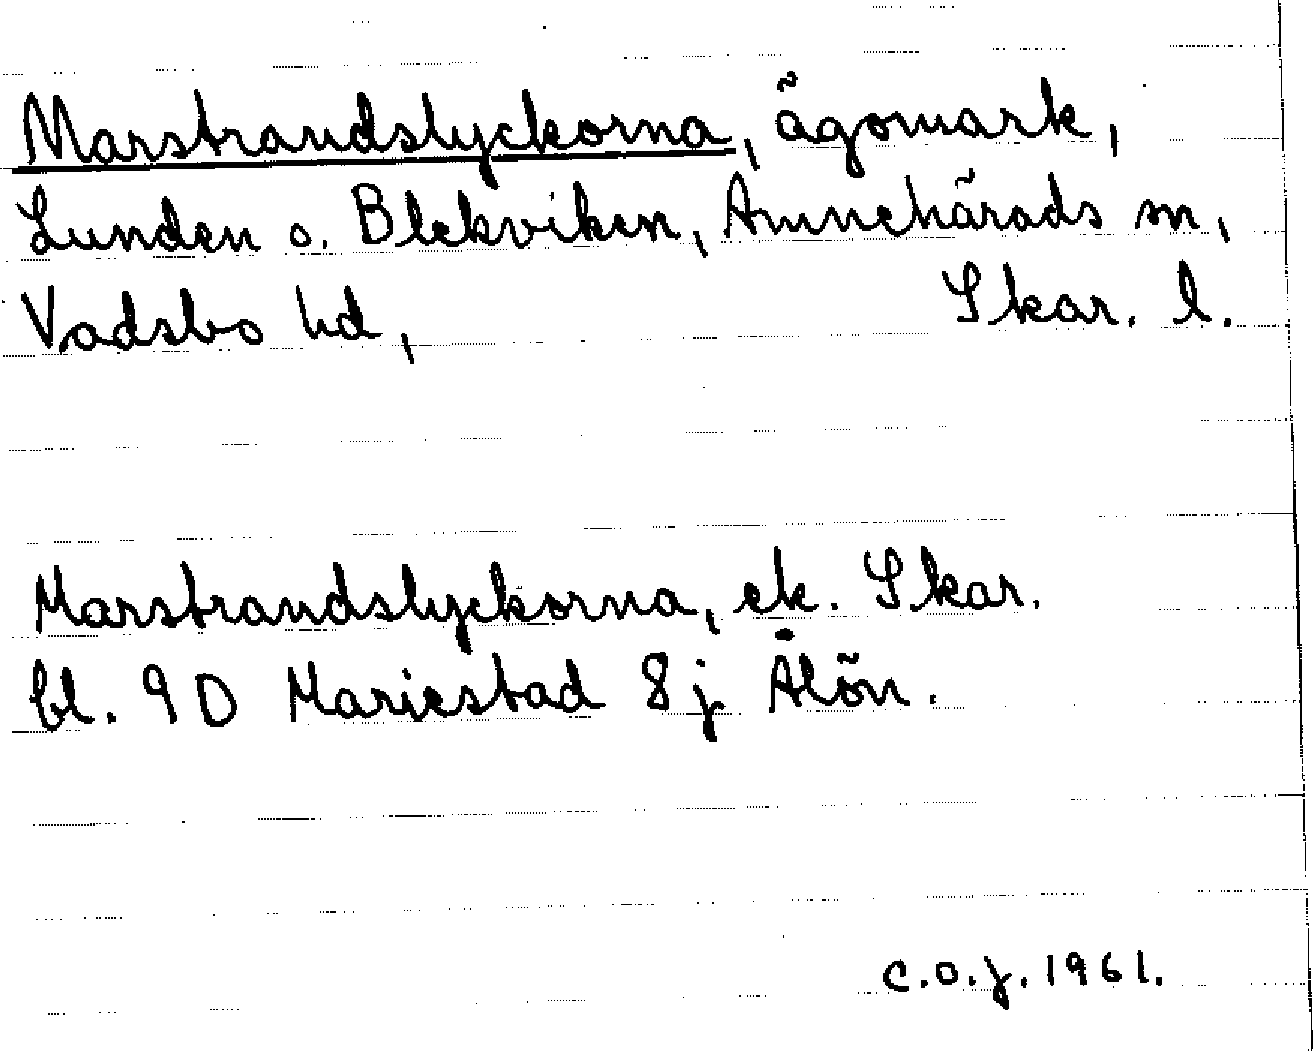 Marstrandslyckorna, ägomark,
Lunden o. Blekviken, Amnehärads sn,
Vadsbo hd, Skar. l.
Marstrandslyckorna, ek. Skar.
bl. 9D Mariestad 8j Älön.
C.O.J. 1961.